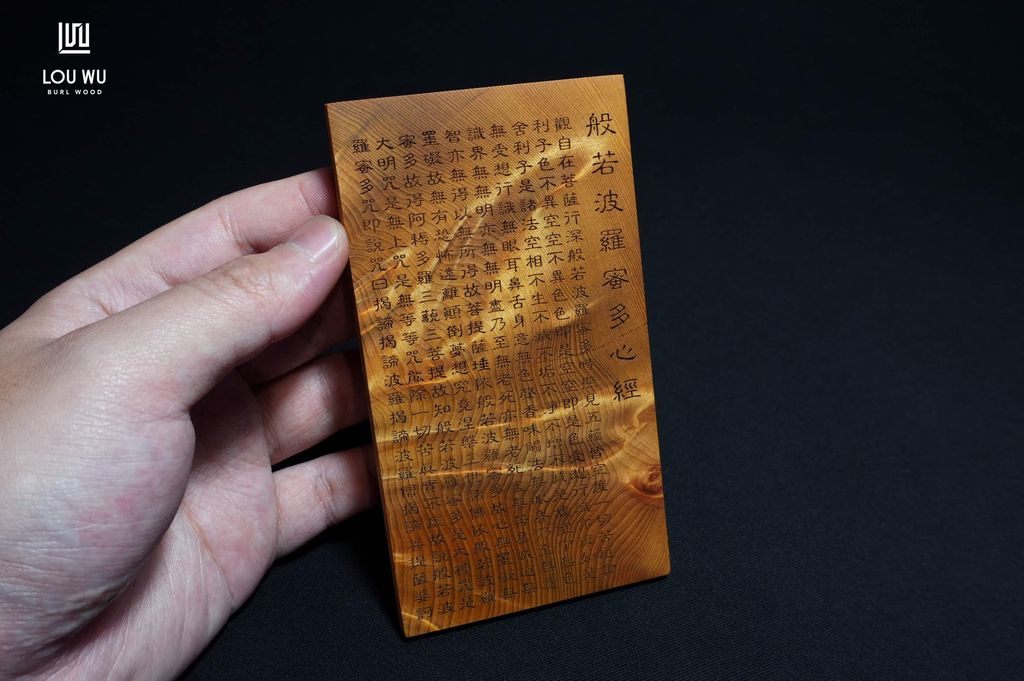 LOU WU
BURL WOOD
般若波羅蜜多心經
觀自在菩薩行深般若波羅蜜多時照見五蘊皆空度一切苦厄舍
利子色不異空空不異色色即是空空即是色受想行識亦復如是
舍利子是諸法空相不生不滅不垢不淨不增不減是故空中無色
無受想行識無眼耳鼻舌身意無色聲香味觸法無眼界乃至無意
識界無無明亦無無明盡乃至無老死亦無老死盡無苦集滅道無
智亦無得以無所得故菩提薩埵依般若波羅蜜多故心無罣礙無
罣礙故無有恐怖遠離顛倒夢想究竟涅槃三世諸佛依般若波羅
蜜多故得阿耨多羅三藐三菩提故知般若波羅蜜多是大神咒是
大明咒是無上咒是無等等咒能除一切苦真實不虛故說般若波
羅蜜多咒即說咒曰揭諦揭諦波羅揭諦波羅僧揭諦菩提薩婆訶